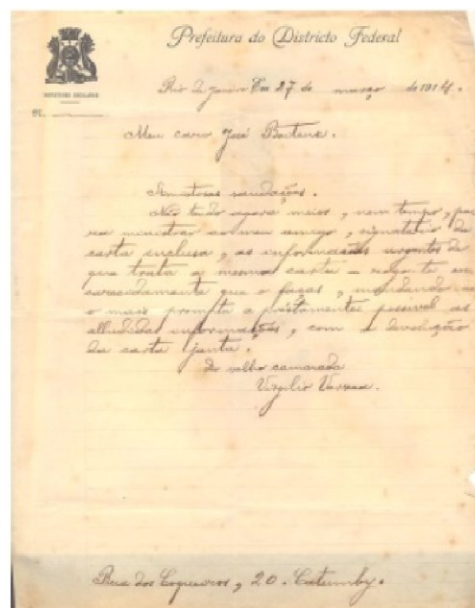 Prefeitura do Districto Federal
Rio de Janeiro Em 27 de março de 1914.
Meu caro José
saudações.
Não tendo agora meios, nem tempo, pa
ra ministrar ao meu amigo, signatario da
carta inclusa, as informações urgentes de
que trata a mesma carta – rogo-te
que o faças, mandando
o mais prompta possivel as
alludidas informações, com a devolução
da carta junta.
Do velho camarada
Virgilio
Rua dos Coqueiros, 20. Catumby.